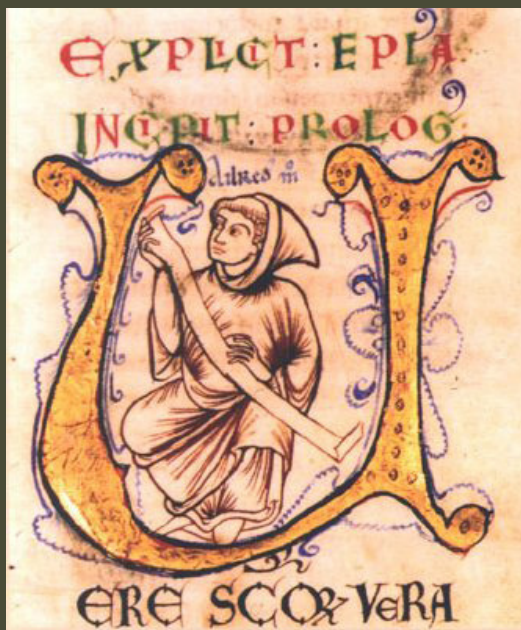 EXPLICIT : EPLA
INCIPIT : PROLOGꝰ
Ailredꝰ
U
ERE SCOꝜ VERA